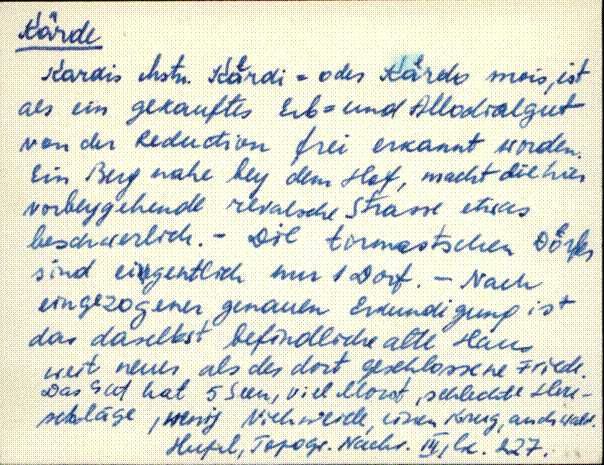 Kärde
Kardis ehstn. Kärdi = oder Kärdo mois, ist
als ein gekauftes Erb= und Allodialgut
von der Reduction frei erkannt worden.
Ein Berg nahe bey dem Hof, macht die hier
vorbeygehende revalsche Strasse etwas
beschwerlich. - Die tormastschen Dörfer
sind eigentlich nur 1 Dorf. - Nach
eingezogener genauen Erkundigung ist
das daselbst befindliche alte Haus
weit neuer als der dort geschlossene Friede.
Das Gut hat 5 Seen, viel Morast, schlechte Heu-
schläge, wenig Viehweide, einen Krug, auch Wald.
Hupel, Topogr. Nachr. III, lk. 227.